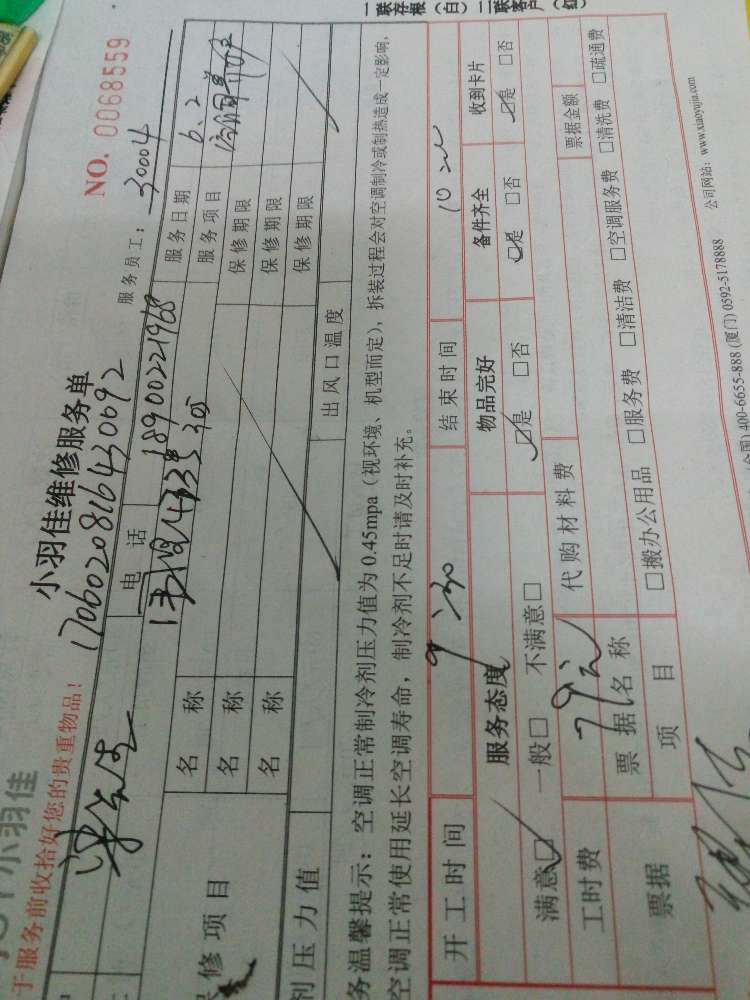 一联存根（白）二联客户（红）
小羽佳
于服务前收拾好您的贵重物品！
小羽佳维修服务单
NO. 0068559
1706020816430692
服务员工： 30004
电话 18900221968
服务日期 6.2
服务项目
名称 保修期限
名称 保修期限
名称 保修期限
修项目
剂压力值 出风口温度
务温馨提示：空调正常制冷剂压力值为 0.45mpa（视环境、机型而定），拆装过程会对空调制冷或制热造成一定影响，
空调正常使用延长空调寿命，制冷剂不足时请及时补充。
开工时间 9:30 结束时间
服务态度 物品完好 备件齐全 收到卡片
满意☑ 一般□ 不满意□ ☑是 □否 ☑是 □否 ☑是 □否
工时费 79元 代购材料费
票据 票据名称 票据金额
项目 □搬办公用品 □服务费 □清洁费 □空调服务费 □清洗费 □疏通费
400-6655-888 (厦门) 0592-5178888 公司网站：www.xiaoyujia.com